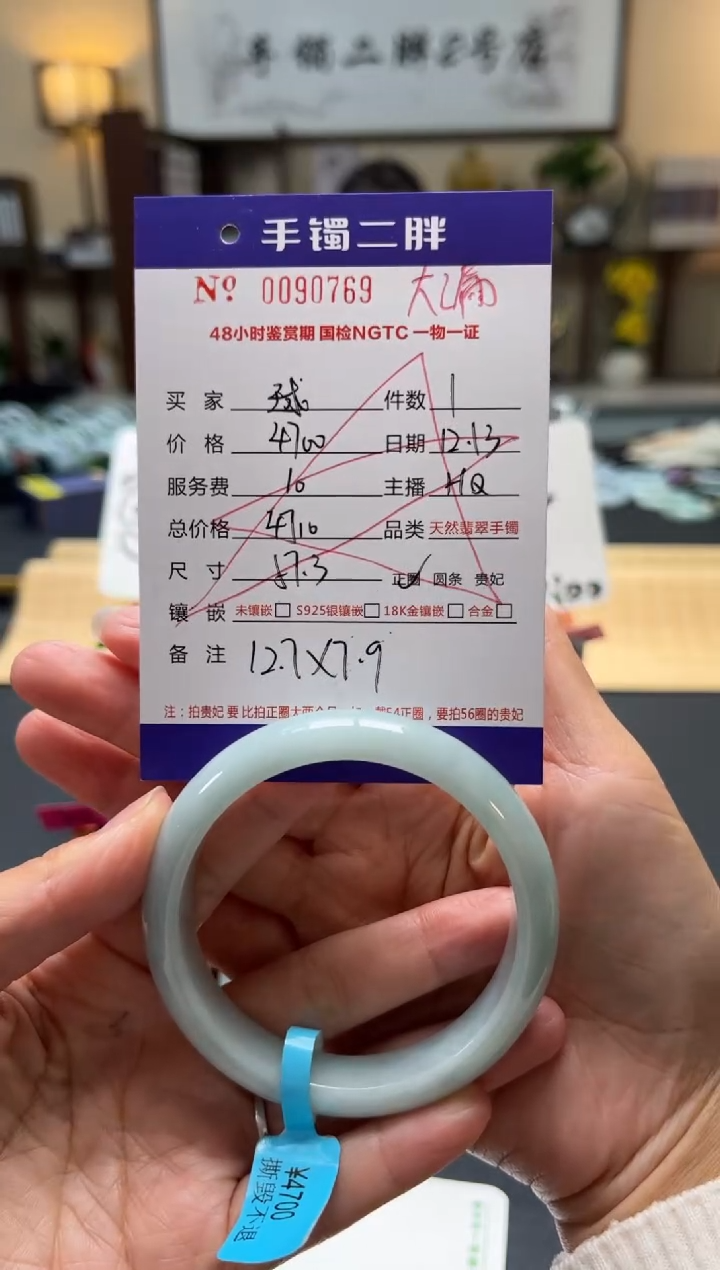 手镯二胖2号店
手镯二胖
Nº 0090769 大漏
48小时鉴赏期 国检NGTC 一物一证
买家 球 件数 1
价格 4700 日期 12.13
服务费 10 主播 HQ
总价格 4710 品类 天然翡翠手镯
尺寸 57.3 正圈 圆条 贵妃
镶嵌 未镶嵌 S925银镶嵌 18K金镶嵌 合金
备注 12.7X7.9
注：拍贵妃 要 比拍正圈大两个号 戴54正圈，要拍56圈的贵妃
¥4700
撕毁不退